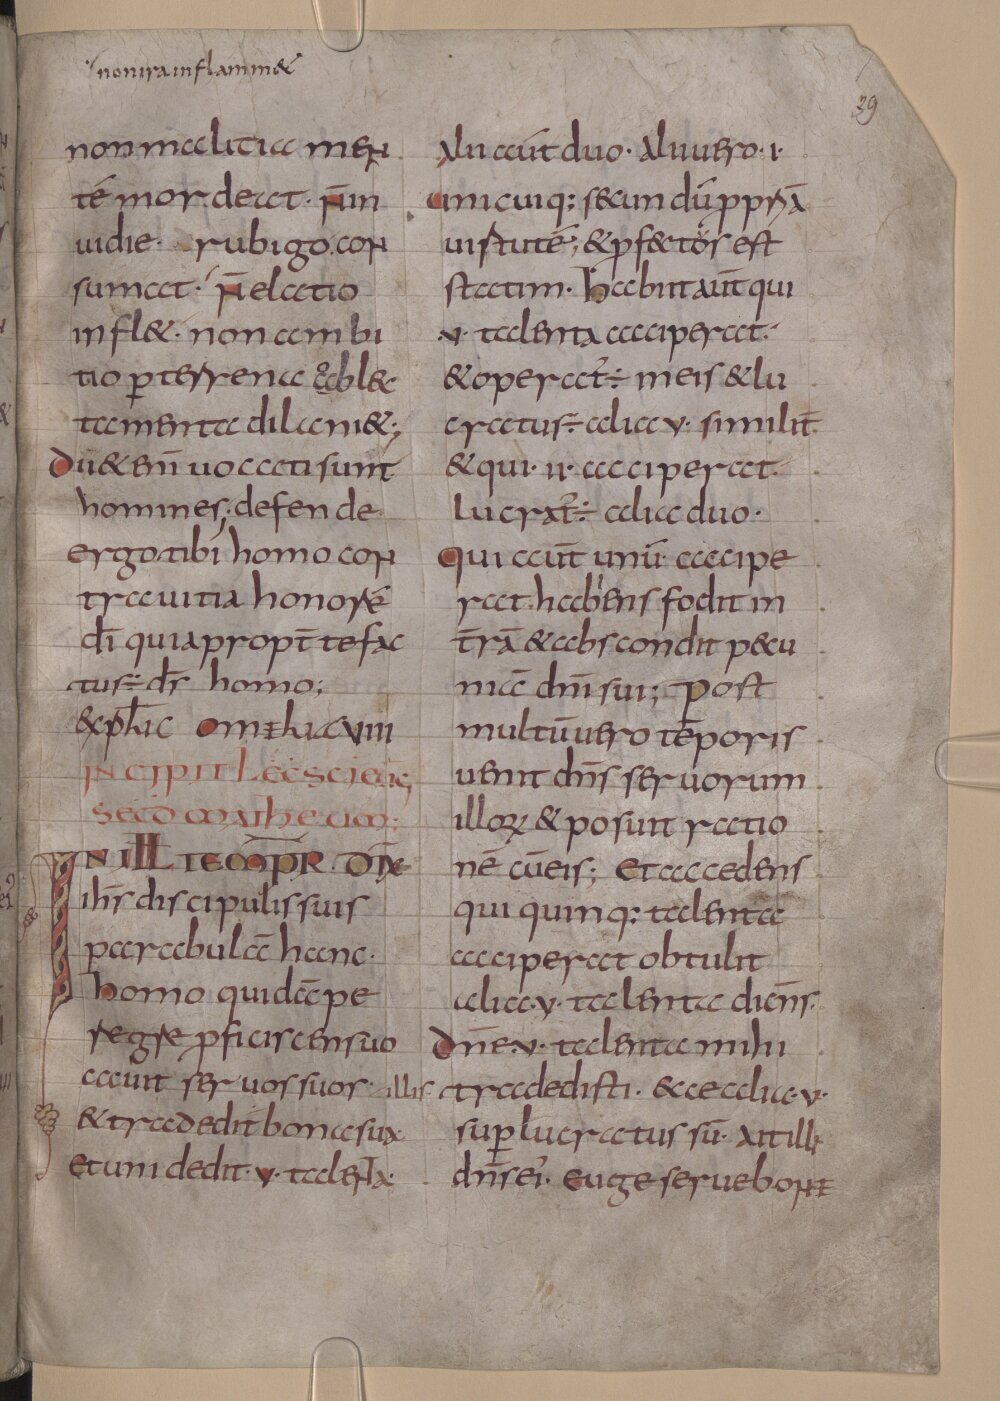 non ira inflamm&
39
non malitia men
tē mordeat. n̄ in
uidie. rubigo con
sumat. n̄ elatio
infl&. non ambi
tio p terrena ablec
tamenta dilani&;
Dii & enī uocati sunt
homines; defende
ergo tibi homo con
tra uitia honorē
dī quia propt̄ te fac
tus÷ d̄s homo;
& p̄lic omelia VIII
INCIPIT LEC SC̄I EUG
SECD MATHEUM;
IN ILL TEMPR DIX
ih̄s discipulis suis
parabulā hanc.
homo quidā pe
regre pficiscens uo
cauit seruos suos. illis
& tradedit bona sua
Et uni dedit. v. talenta
Alii aūt duo. Alii uero. i.
unicuiq; secundū ppriā
uirtutē; & pf&tōs est
statim. Habiit aūt qui
.v. talenta acciperat.
& operat'.÷ in eis & lu
cratus÷ alia v. similit̄
& qui. ii. acciperat.
lucrat'.÷ alia duo.
Qui aūt unū accipe
rat. habens fodit in
t̄rā & abscondit pecu
niā dn̄i sui; Post
multū uero tēporis
uenit dn̄s seruorum
illorum & posuit ratio
nē cū eis; Et accedens
qui quinq; talenta
acciperat obtulit
alia .v. talenta dicēns.
Dn̄e .v. talenta mihi
tradedisti. & ecce alia .v.
sup lucratus sū. Ait illi
dn̄s ei'. Euge serue bone